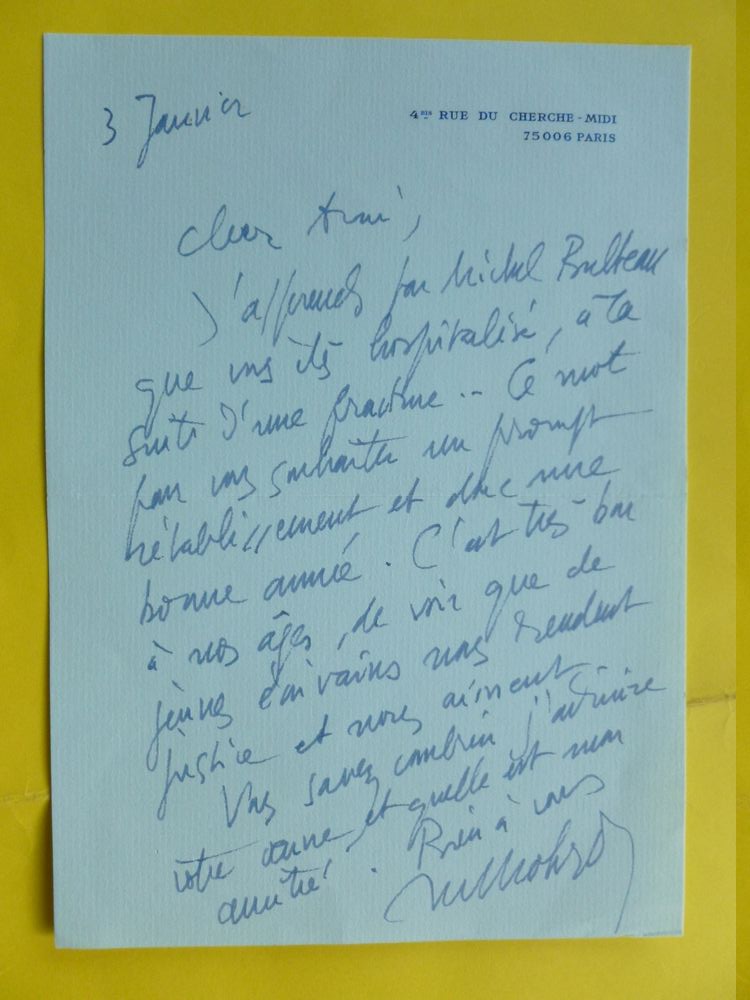 3 Janvier
4 BIS RUE DU CHERCHE-MIDI
75006 PARIS
Cher Ami,
J'apprends par Michel Bulteau
que vous êtes hospitalisé, à la
suite d'une fracture .. Ce mot
pour vous souhaiter un prompt
rétablissement et donc une
bonne année. C'est très bon
à nos âges, de voir que de
jeunes écrivains nous rendent
justice et nous aiment
Vous savez combien j'admire
votre œuvre, et quelle est mon
amitié. Bien à vous